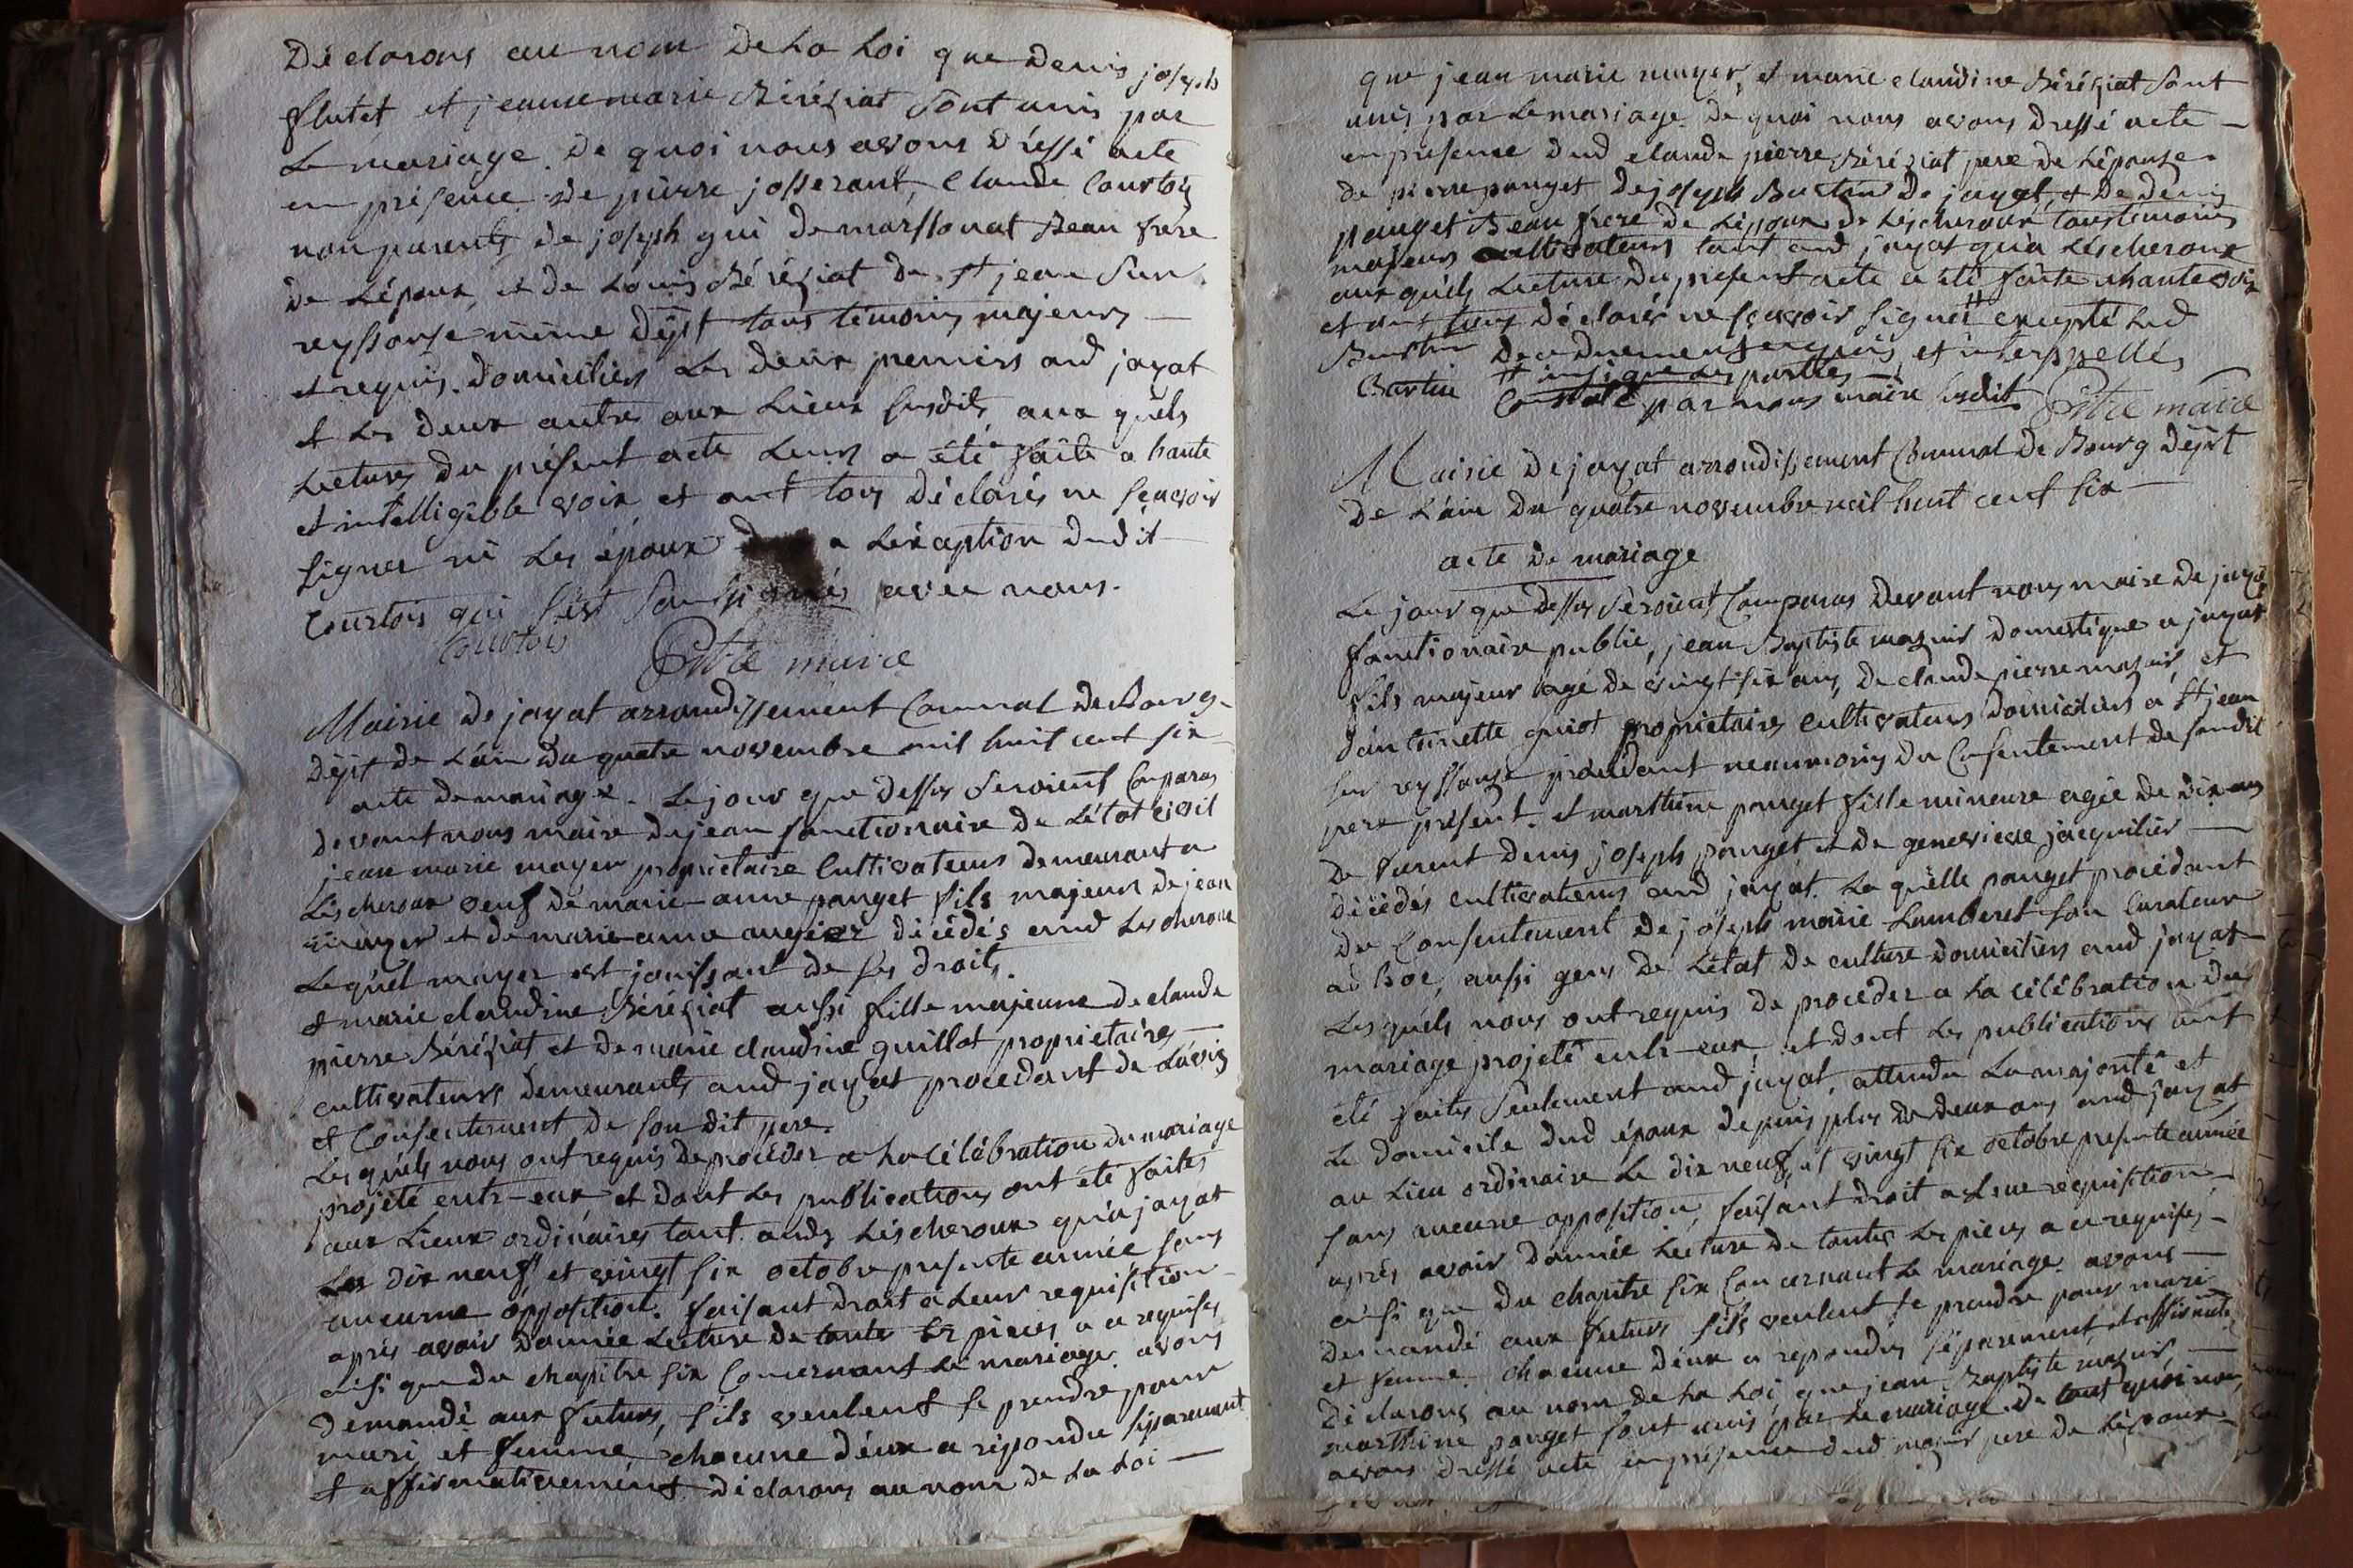 Déclarons au nom de La Loi que denis joseph
flutet et jeanne marie Béréziat sont unis par
Le mariage. de quoi nous avons dréssé acte
en présence de pierre josserant, Claude Courtois
non parents, de joseph gui de marssonat Beau frere
de Lépoux, et de Louis Béréziat de st jean sur
reyssouse même dépt tous témoins majeurs —
et requis. domiciliés Les deux premiers aud jayat
et Les deux autre aux Lieux susdits, aux quels
Lectures du présent acte Leurs a été faite a haute
et intelligible voix et ont tous déclarés ne sçavoir
signer ni Les époux a Léxception dudit —
Courtois qui s'est soussignés avec nous.
Courtois
maire
Mairie de jayat arrondissement Communal de Bourg
dépt de L'ain du quatre novembre mil huit cent six
acte de mariage. Le jour que dessus seroient Comparus
devant nous maire dujean fonctionaire de L'état civil
jean marie mayer propriétaire Cultivateurs demeurant a
Léscheroux veuf de marie-anne panget fils majeur de jean
mayer et de marie anne augier décédés aud Lescheroux
Lequél mayer est jouissant de ses droits.
et marie claudine Béréziat aussi fille majeure de claude
pierre Béréziat et de marie claudine guillot propriétaires —
cultivateurs demeurants aud jayat procedant de L'avis
et Consentement de son dit pere.
Les quels nous ont requis de procéder a La célébration du mariage
projété entr-eux, et dont Les publications ont été faites
aux Lieux ordinaires tant auds Léscheroux qu'a jayat
Les dix neuf et vingt six octobre présente année sans
aucune opposition. faisant droit a Leur requisition
aprés avoir donnée Lecture de toute Les pieces a ce requises
ainsi que du chapitre six Concernant Le mariage. avons
demandé aux futurs, s'ils veulent se prendre pour
mari et femme, chacune d'eux a répondu séparement
et affirmativement. déclarons au nom de La Loi —
que jean marie mayer, et marie claudine Béréziat sont
unis par Le mariage. de quoi nous avons dressé acte —
en présence dud claude pierre Béréziat pere de Lépouse
de pierre panget de joseph Burtin de jayat, et de denis
panget Beau frere de Lépoux de Lescheroux tous témoins
majeurs cultivateurs tant aud jayat qu'a Léscheroux
aux quéls Lecture du présent acte a été faite a haute voix
et ont tous déclarés ne sçavoir signer ++ excepté Led
Burtin de ce duement enquis et interppellés
Burtin ++ les parties —
par nous maire susdit maire
Mairie de jayat arrondissement Communal de Bourg dépt
de L'ain du quatre novembre mil huit cent six —
acte de mariage
Le jour que dessus séroient Comparus devant nous maire de jayat
fonctionaire public, jean Baptiste mazuir domestique a jayat
fils majeur agé de vingt six ans, de claude pierre mazuir, et
d'antoinette guiot propriétaires cultivateurs domiciliés a st jean
sur reyssouse procédant neanmoins du Consentement de sondit
pere présent. et marthine panget fille mineure agée de dix ans
de furent denis joseph panget et de genevieve jacquilier —
décédés cultivateurs aud jayat. La qu'elle panget procédant
du Consentement de joseph marie Lambert son Curateur
ad hoc, aussi gens de L'état de culture domiciliés aud jayat —
Les quéls nous ont requis de procéder a La célébration du
mariage projété entr-eux, et dont Les publications ont
été faites seulement aud jayat, attendu La majorité et
Le domicile dud époux depuis plus de deux ans aud jayat
au Lieu ordinaire Le dix neuf, et vingt six octobre présente année
sans aucune opposition, faisant droit a Leur requisition —
aprés avoir donnée Lecture de toutes Les pieces a ce requises —
ainsi que du chapitre six Concernant Le mariage. avons —
demandé aux futurs s'ils veulent se prendre pour mari
et femme. chacune d'eux a repondus séparement, et affirmativt
déclarons au nom de La Loi, que jean Baptiste mazuir, —
marthine panget sont unis par Le mariage. de tout quoi nous
avons dressé acte en présence dud mazuir pere de Lépoux —